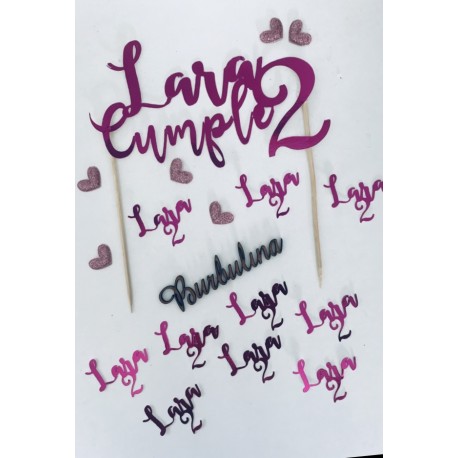 Lara
Cumple 2
Lara
2
Lara
2
Lara
2
Burbulina
Lara
2
Lara
2
Lara
2
Lara
2
Lara
2
Lara
2
Lara
2